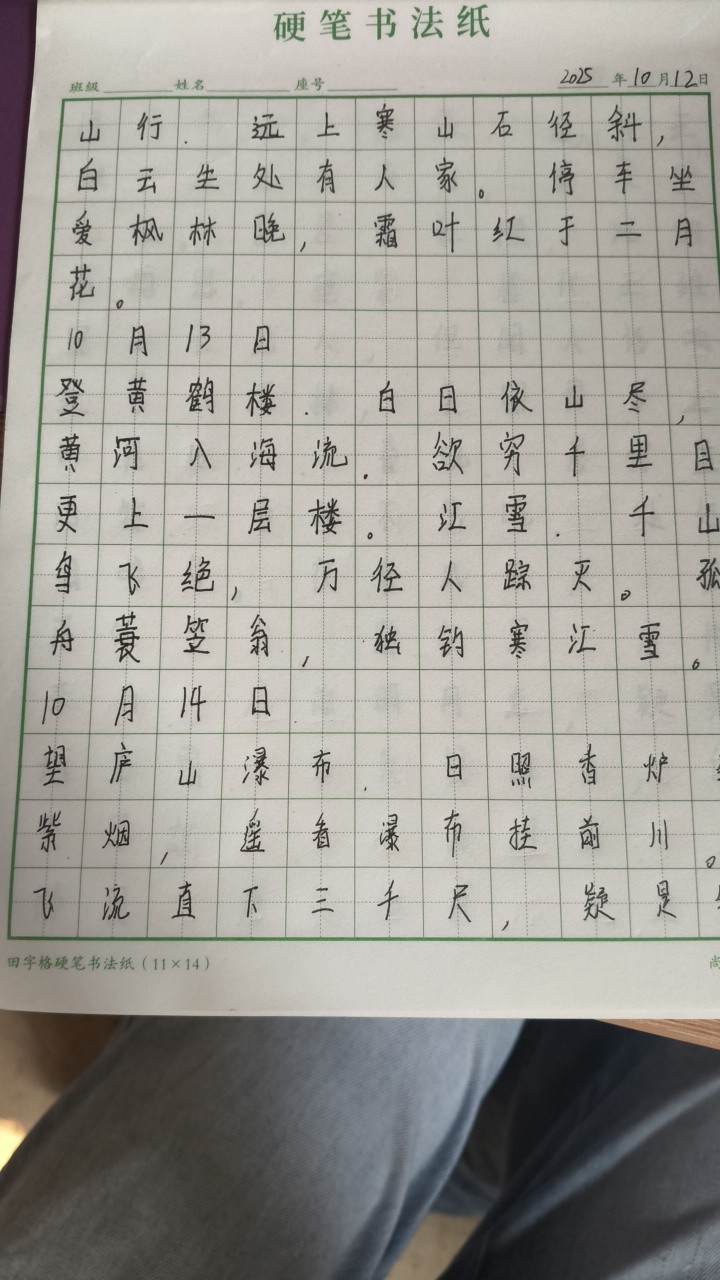 硬笔书法纸
班级 姓名 座号 2025 年 10 月 12 日
山行. 远上寒山石径斜,
白云生处有人家。停车坐
爱枫林晚, 霜叶红于二月
花。
10月13日
登黄鹤楼. 白日依山尽,
黄河入海流. 欲穷千里目
更上一层楼。江雪. 千山
鸟飞绝, 万径人踪灭。孤
舟蓑笠翁, 独钓寒江雪。
10月14日
望庐山瀑布. 日照香炉
紫烟, 遥看瀑布挂前川。
飞流直下三千尺, 疑是
田字格硬笔书法纸(11×14) 尚